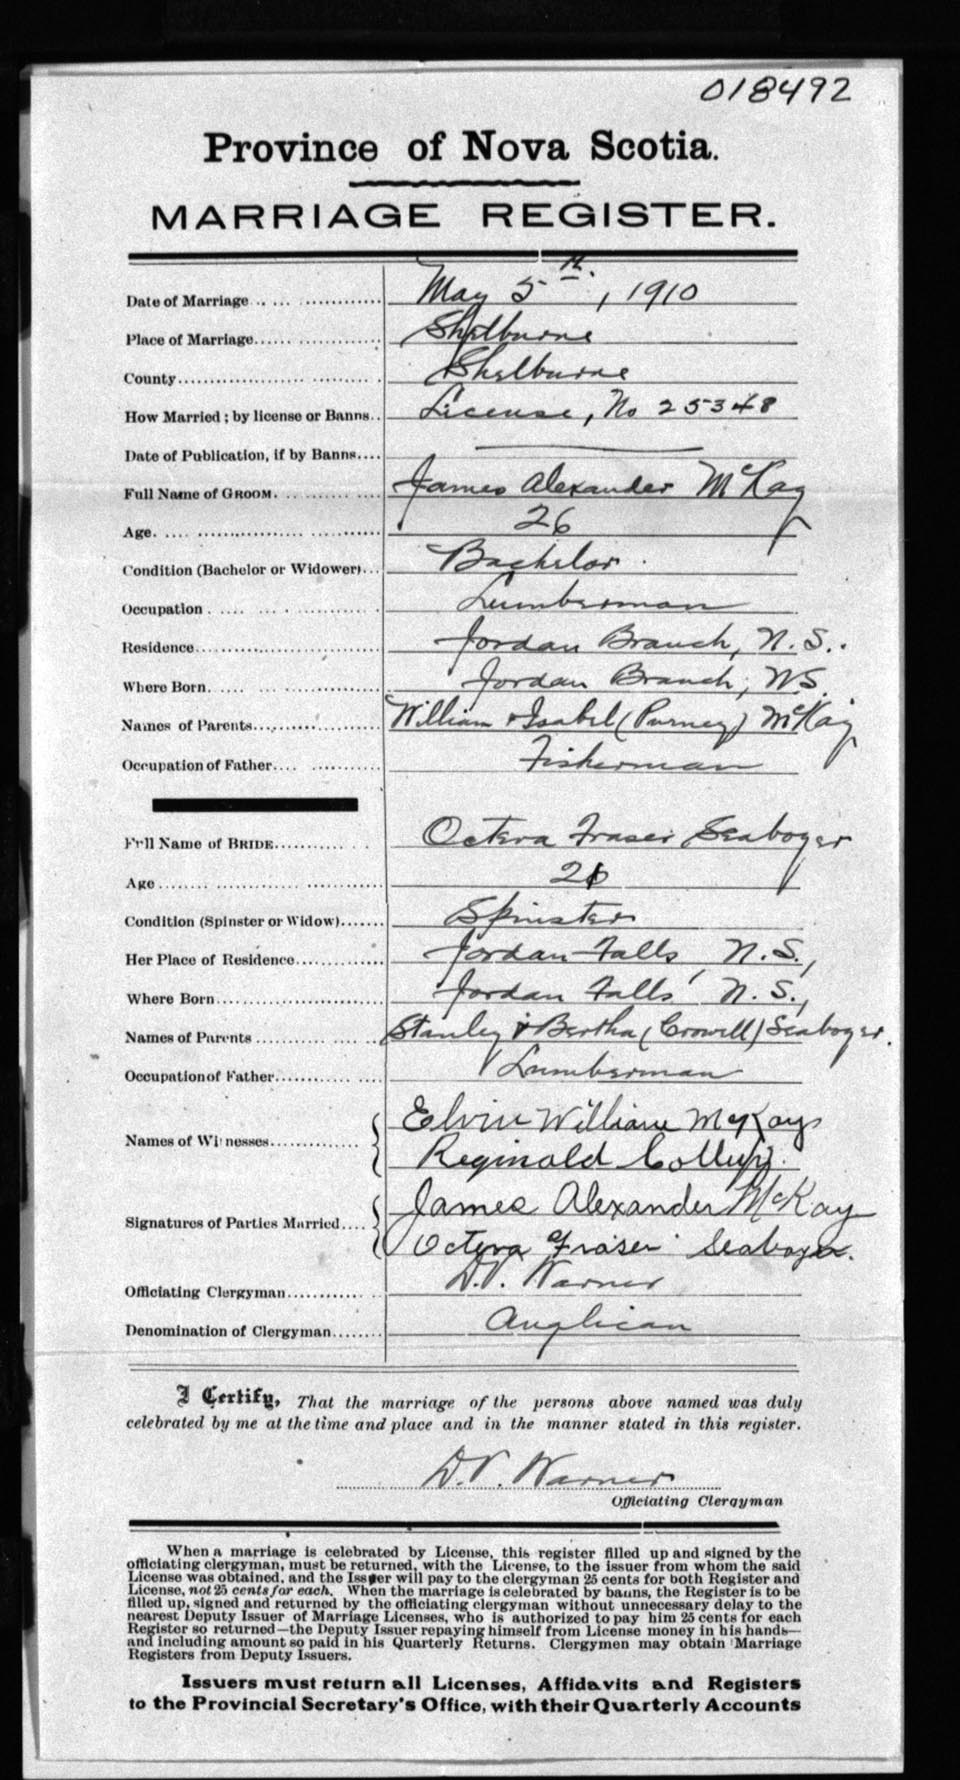 018492
Province of Nova Scotia.
MARRIAGE REGISTER.
Date of Marriage May 5th, 1910
Place of Marriage Shelburne
County Shelburne
How Married; by license or Banns License, No 25348
Date of Publication, if by Banns
Full Name of GROOM James Alexander McKay
Age 26
Condition (Bachelor or Widower) Bachelor
Occupation Lumberman
Residence Jordan Branch, N.S.
Where Born Jordan Branch, N.S.
Names of Parents William & Isabel (Purney) McKay
Occupation of Father Fisherman
Full Name of BRIDE Octera Fraser Seaboyer
Age
Condition (Spinster or Widow) Spinster
Her Place of Residence Jordan Falls, N.S.,
Where Born Jordan Falls, N.S.,
Names of Parents Stanley & Bertha (Crowell) Seaboyer.
Occupation of Father Lumberman
Names of Witnesses Elvin William McKay
Reginald
Signatures of Parties Married James Alexander McKay
Octera Fraser Seaboyer.
Officiating Clergyman D.V. Warner
Denomination of Clergyman Anglican
I Certify, That the marriage of the persons above named was duly
celebrated by me at the time and place and in the manner stated in this register.
D.V. Warner
Officiating Clergyman
When a marriage is celebrated by License, this register filled up and signed by the
officiating clergyman, must be returned, with the License, to the issuer from whom the said
License was obtained, and the Issuer will pay to the clergyman 25 cents for both Register and
License, not 25 cents for each. When the marriage is celebrated by banns, the Register is to be
filled up, signed and returned by the officiating clergyman without unnecessary delay to the
nearest Deputy Issuer of Marriage Licenses, who is authorized to pay him 25 cents for each
Register so returned—the Deputy Issuer repaying himself from License money in his hands—
and including amount so paid in his Quarterly Returns. Clergymen may obtain Marriage
Registers from Deputy Issuers.
Issuers must return all Licenses, Affidavits and Registers
to the Provincial Secretary's Office, with their Quarterly Accounts